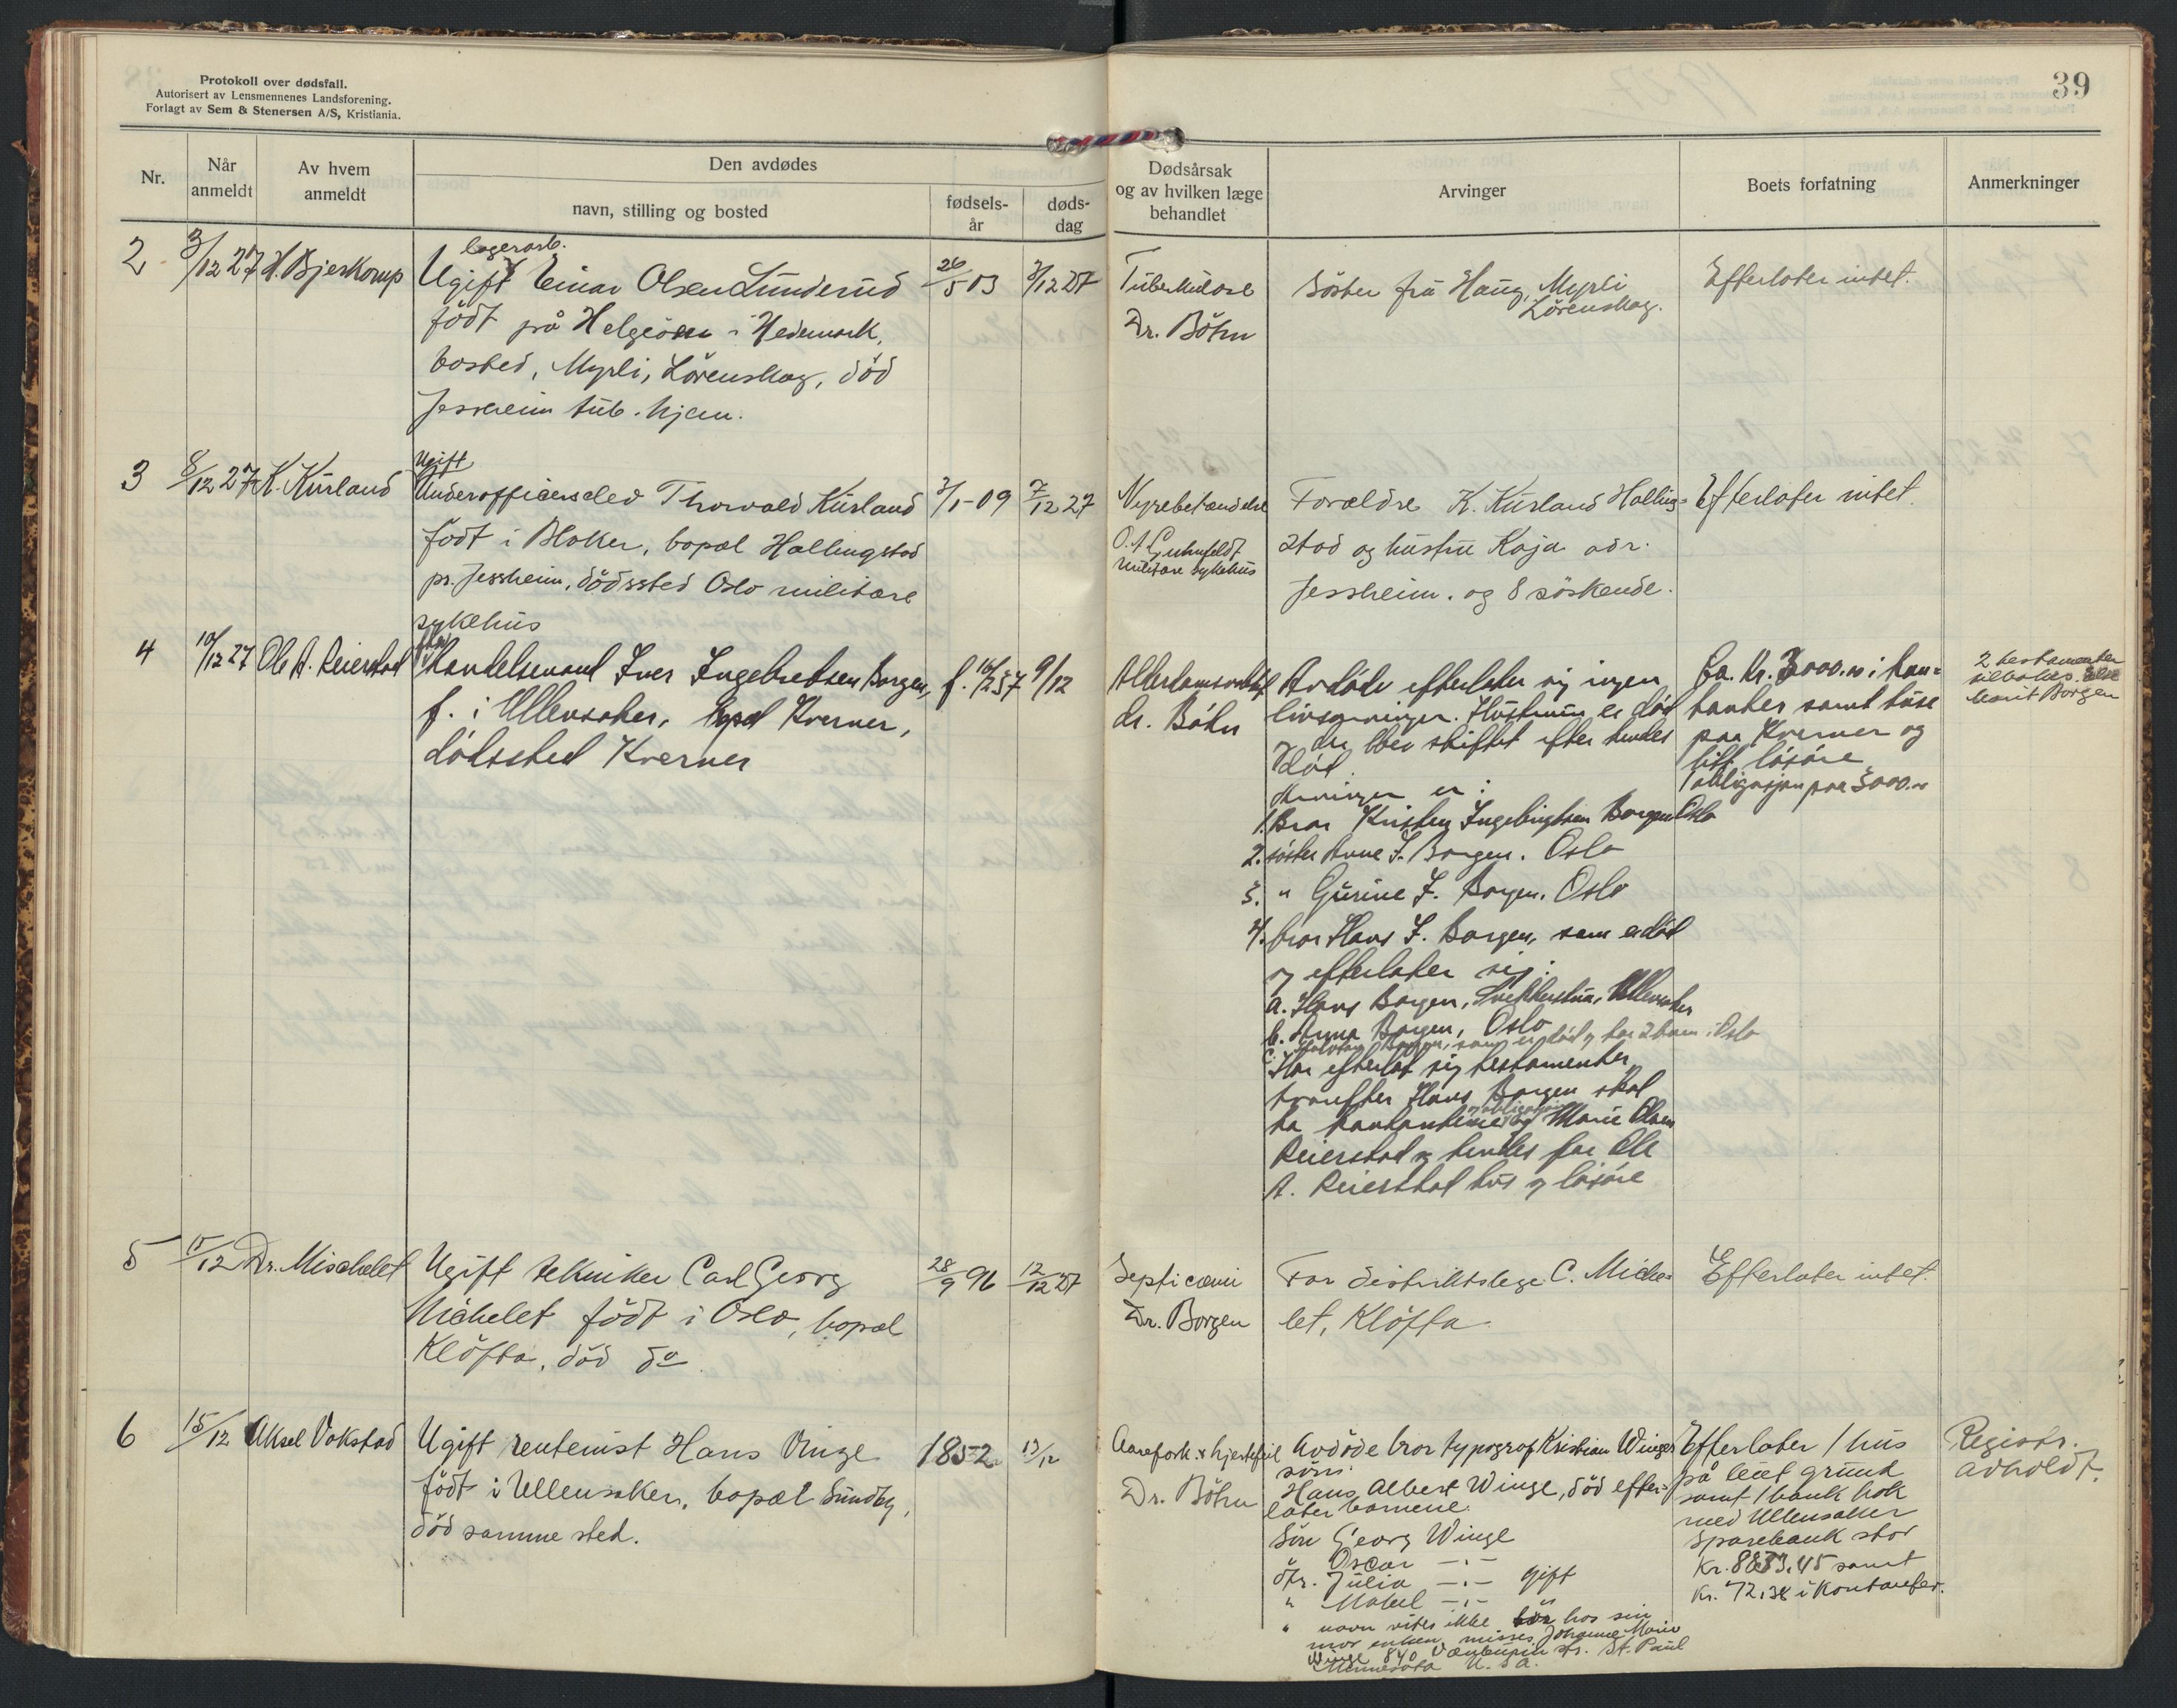 Protokoll over dødsfall.
Autorisert av Lensmennenes Landsforening.
Forlagt av Sem & Stenersen A/S, Kristiania.
39
Nr.
Når anmeldt
Av hvem anmeldt
Den avdødes
navn, stilling og bosted
fødsels-år
døds-dag
Dødsårsak og av hvilken læge behandlet
Arvinger
Boets forfatning
Anmerkninger
2
3/12 27
H. Bjerkorup
lagerarb.
Ugift Einar Olsen Lunderud
født på Helgeöen i Hedemark,
bosted, Myrli, Lørenskog, död
Jessheim tub. hjem.
26/5 03
3/12 27
Tuberkulose
Dr. Böhn
Söster fru Haug, Myrli
Lörenskog.
Efterlater intet.
3
8/12 27
K. Kurland
Ugift
Underofficerselev Thorvald Kurland
födt i Blaker, bopæl Hallingstad
pr. Jessheim, dödssted Oslo militære
sykehus
7/1-09
7/12 27
Nyrebetændelse
militære sykehus
Forældre K. Kurland Halling=
stad og hustru Kaja adr.
Jessheim. og 8 söskende.
Efterlater intet.
4
10/12 27
Ole A. Reierstad
Handelsmand Iver Ingebretsen Borgen,
f. i Ullensaker, bopæl Kverner,
dödssted Kverner
f. 16/2 57
9/12
Alderdomssvakhet
dr. Böhn
Avdöde efterlater sig ingen
livsarvinger. Hustruen er död
og der blev skiftet efter hendes
död.
Arvinger er:
1. Bror Kristen Ingebrigtsen Borgen Oslo
2. söster Anne I. Borgen. Oslo
3. " Gurine I. Borgen. Oslo
4. bror Hans I. Borgen, som er död
og efterlater sig:
a. Hans Borgen, Ullensaker
b. Anna Borgen, Oslo
c. Borgen, som er död og har 2 barn i Oslo
Har efterlat sig testamenter
hvorefter Hans Borgen skal
ha kontanterne og Marie Olsen
Reierstad og hendes far Ole
A. Reierstad hus og lösöre
Ca. Kr. 3000.00 i kon=
tanter samt huse
paa Kverner og
litt lösöre
1 obligasjon paa 3000.00
2 testamenter
Borgen
5
15/12
Dr. Mischelet
Ugift tekniker Carl Georg
Michelet födt i Oslo, bopæl
Klöfta, död do
28/9 96
12/12 27
Septicæmi
Dr. Borgen
Far distriktslege C. Miche=
let, Klöfta.
Efterlater intet.
6
15/12
Aksel Vakstad
Ugift rentenist Hans Vinge
födt i Ullensaker, bopæl Sundby,
död samme sted.
1852
13/12
Aarefork. & hjertefeil
Dr. Böhn
Avdöde bror typograf Kristian Winges
söns.
Hans Albert Winge, död efter=
later barnene.
Sön Georg Winge
" Oscar —"—
dtr. Julia —"— gift
" Mabel —"— "
" navn vites ikke hos sin
mor enken, misses Johanne Marie
Winge 840 str. St. Paul
Minnesota U.S.A.
Efterlater 1 hus
på leiet grund
samt 1 bank bok
med Ullensaker
Sparebank stor
Kr. 8833.45 samt
Kr. 72.38 i kontanter.
Registr.
avholdt.